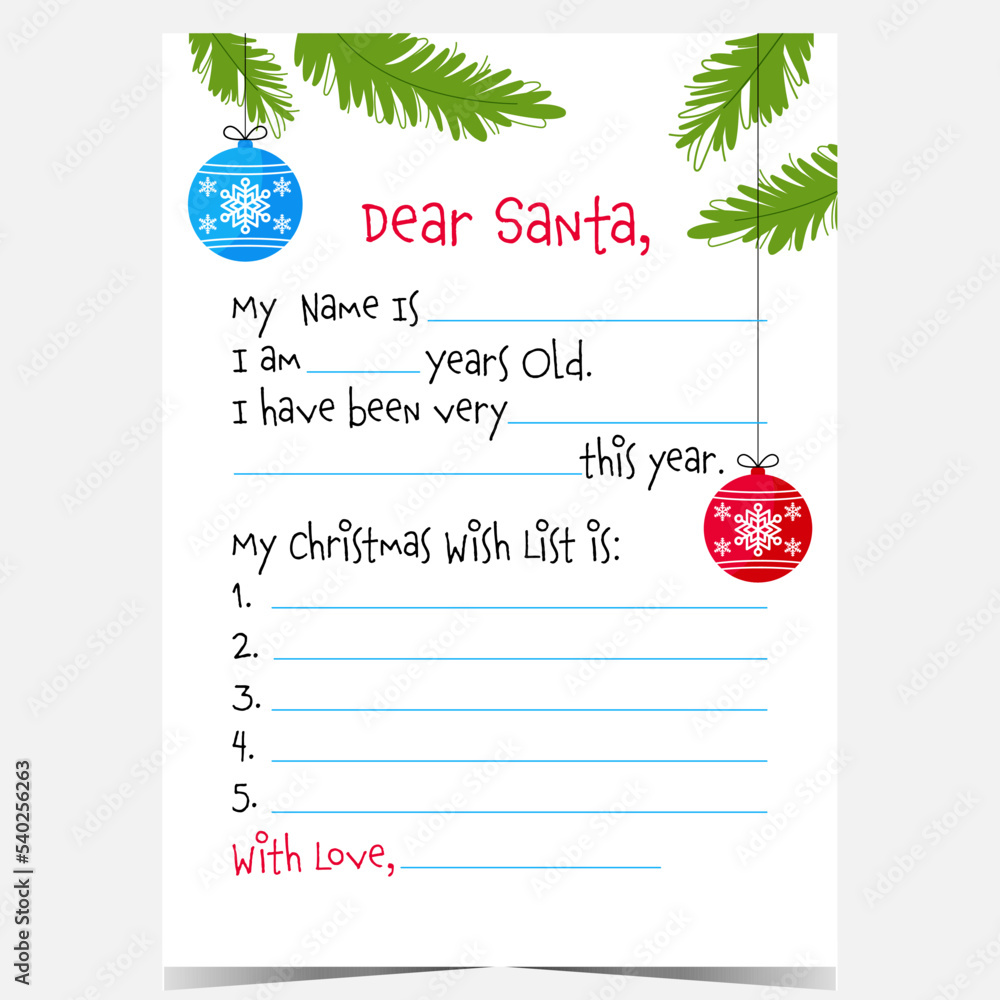 Dear Santa,
My Name Is
I am years Old.
I have been very
this year.
My Christmas Wish List is:
1.
2.
3.
4.
5.
With Love,
Adobe Stock | #540256263